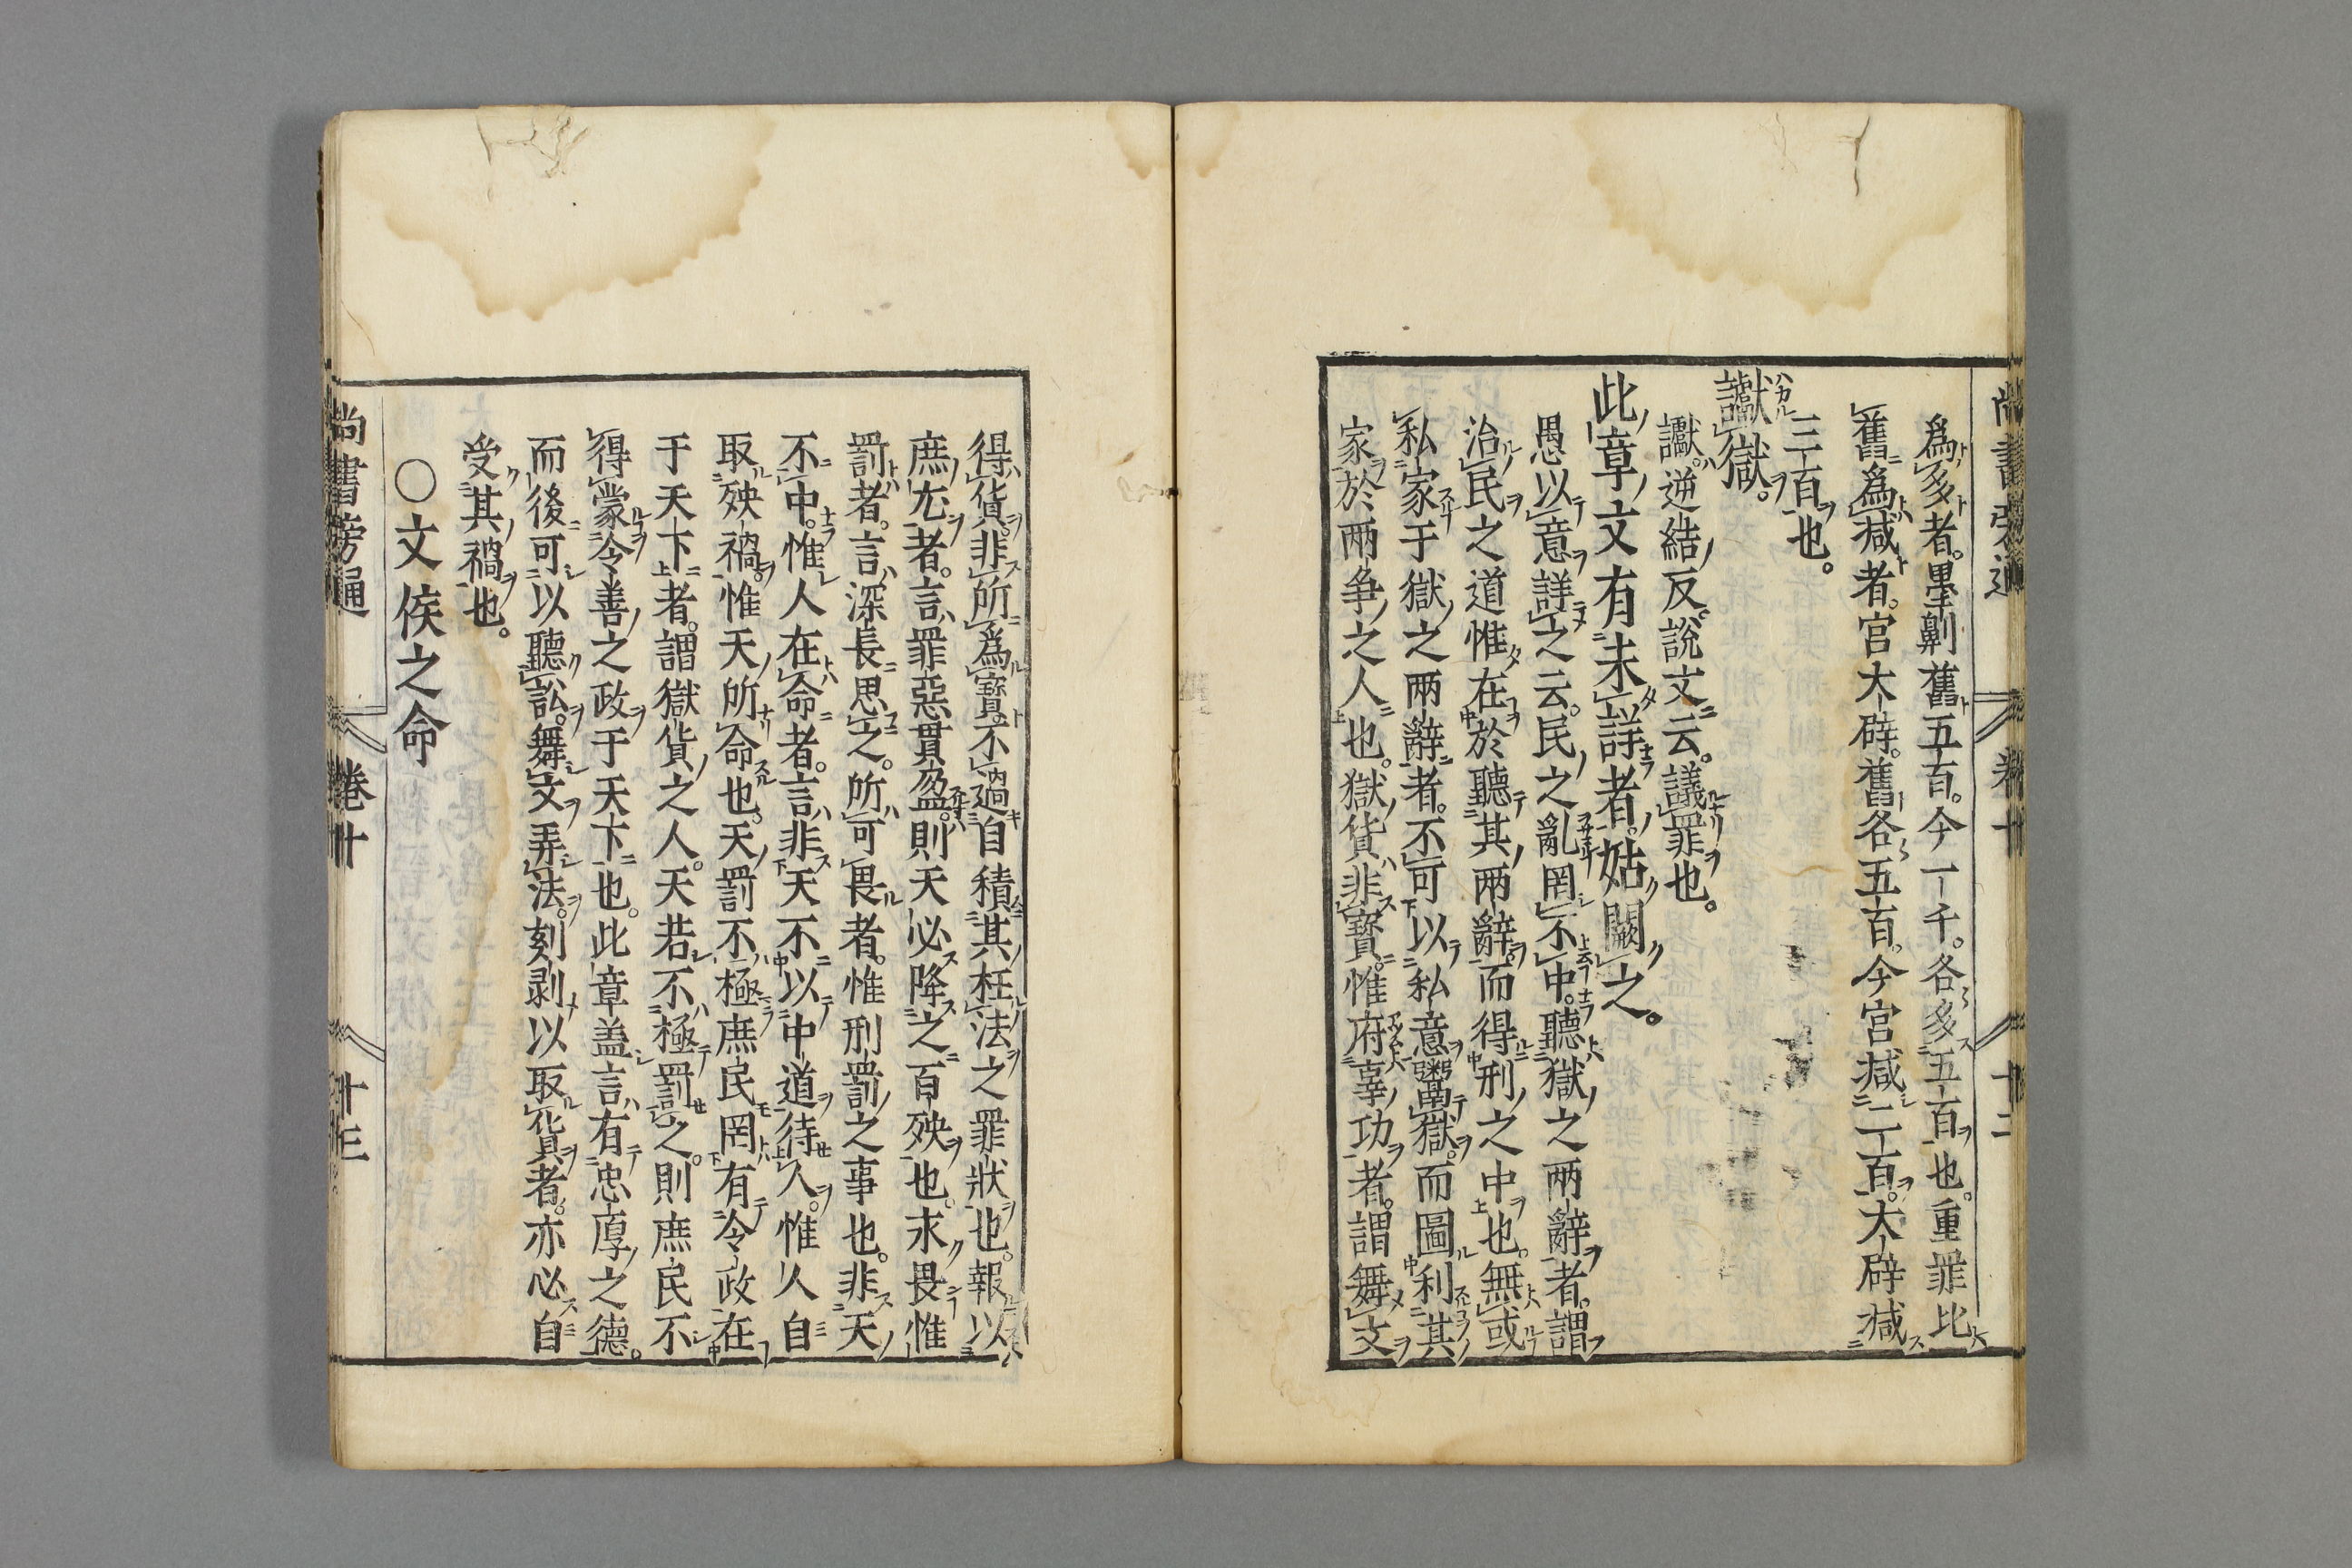 尚書旁通 卷十 十二
爲多者墨劓舊五百今一千各多五百也重罪比
舊爲減者宮大辟舊各五百今宮減二百大辟減
三百也
讞獄
讞逆結反說文云議罪也
此章文有未詳者姑闕之
愚以意詳之云民之亂罔不中聽獄之兩辭者謂
治民之道惟在於聽其兩辭而得刑之中也無或
私家于獄之兩辭者不可以私意鬻獄而圖利其
家於兩爭之人也獄貨非寶惟府辜功者謂舞文
得貨非所爲寶不過自積其枉法之罪狀也報以
庶尤者言罪惡貫盈則天必降之百殃也永畏惟
罰者言深長思之所可畏者惟刑罰之事也非天
不中惟人在命者言非天不以中道待人惟人自
取殃禍惟天所命也天罰不極庶民罔有令政在
于天下者謂獄貨之人天若不極罰之則庶民不
得蒙令善之政于天下也此章盖言有忠厚之德
而後可以聽訟舞文弄法刻剥以取貨者亦必自
受其禍也
○文侯之命
尚書旁通 卷十 十三